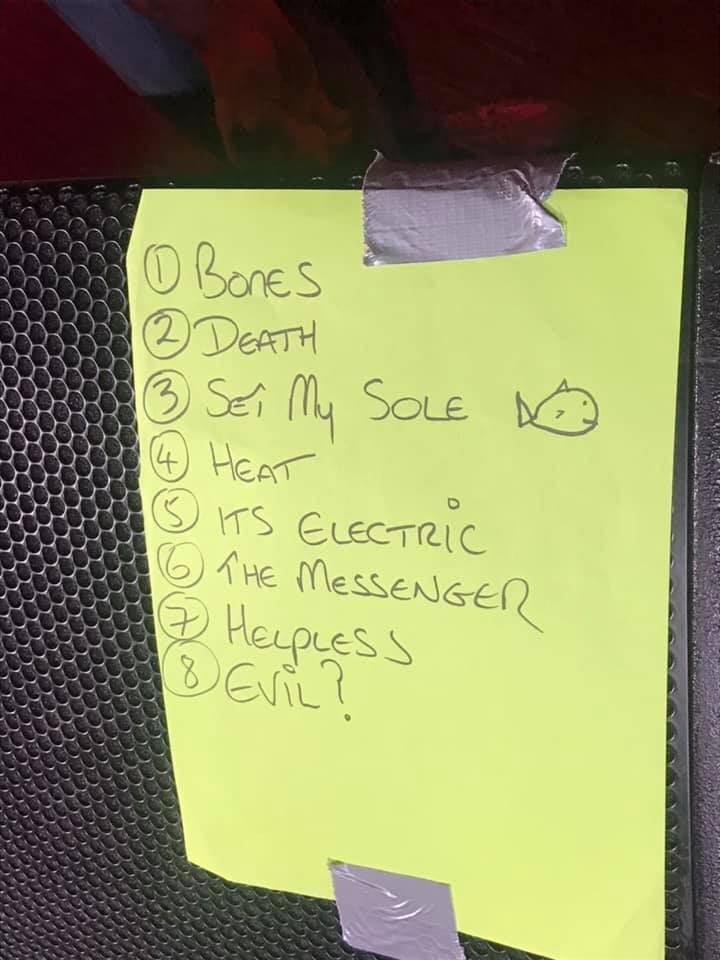 1 BONES
2 DEATH
3 SET MY SOLE
4 HEAT
5 ITS ELECTRIC
6 THE MESSENGER
7 HELPLESS
8 EVIL?